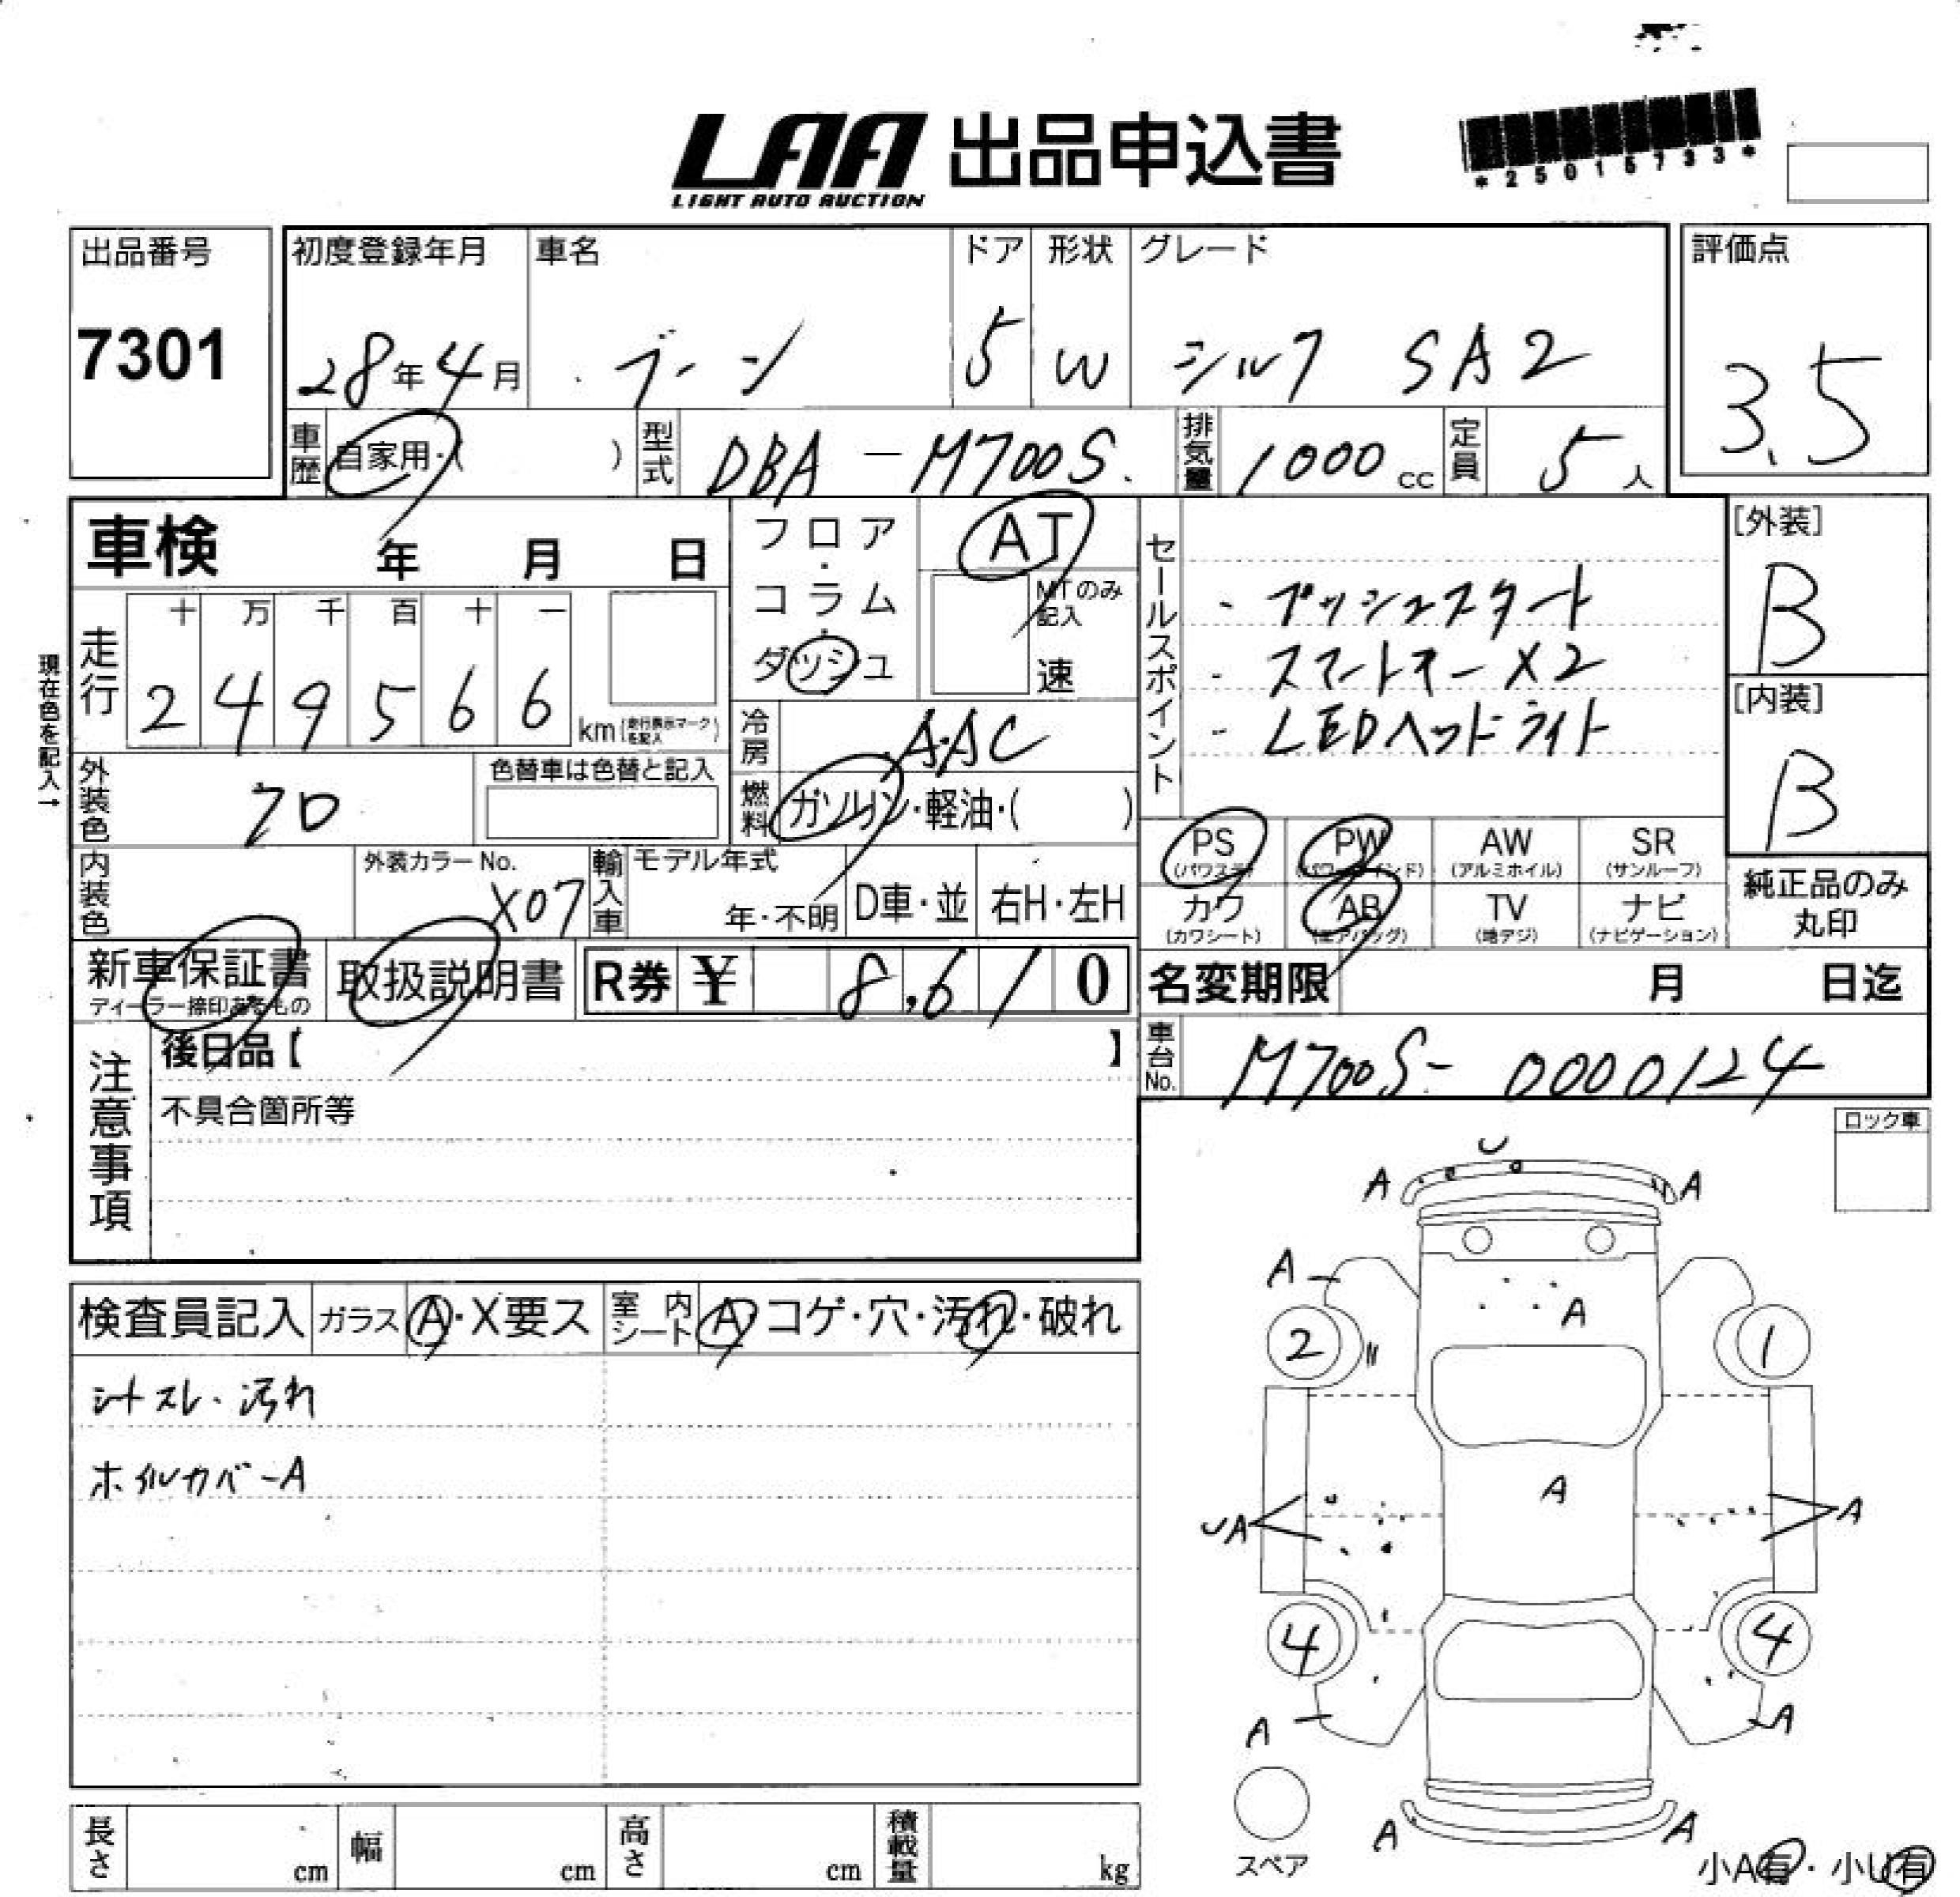 LAA 出品申込書
LIGHT AUTO AUCTION
*25015733*
出品番号
7301
初度登録年月
28年4月
車名
ブーン
ドア
5
形状
W
グレード
シルク SA2
評価点
3.5
車歴
自家用・( )
型式
DBA-M700S.
排気量
1000cc
定員
5人
車検 年 月 日
フロア・コラム・ダッシュ
AT
MTのみ記入
速
現在色を記入→
走行
十 万 千 百 十 一
2 4 9 5 6 6 km(走行表示マークを記入)
冷房
AAC
燃料
ガソリン・軽油・( )
セールスポイント
- プッシュスタート
- スマートキーX2
- LEDヘッドライト
[外装]
B
[内装]
B
外装色
色替車は色替と記入
内装色
外装カラーNo.
X07
輸入車
モデル年式
年・不明
D車・並
右H・左H
PS (パワステ)
PW (パワーウインド)
AW (アルミホイル)
SR (サンルーフ)
カワ (カワシート)
AB (エアバッグ)
TV (地デジ)
ナビ (ナビゲーション)
純正品のみ丸印
新車保証書
ディーラー捺印あるもの
取扱説明書
R券 ¥ 8,610
名変期限 月 日迄
車台No.
M700S-0000124
注意事項
後日品【 】
不具合箇所等
ロック車
検査員記入
ガラス A・X要ス
室内シート A・コゲ・穴・汚れ・破れ
シートスレ・汚れ
ホイルカバーA
U
A A
A
A
2 1
A
UA A
4 4
A A
A A
スペア
小A有・小U有
長さ cm
幅 cm
高さ cm
積載量 kg